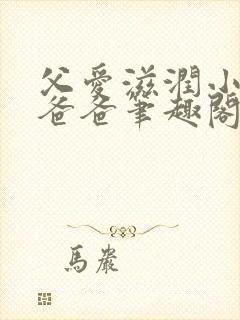 父愛滋潤小
爸爸筆趣閣
馬嚴